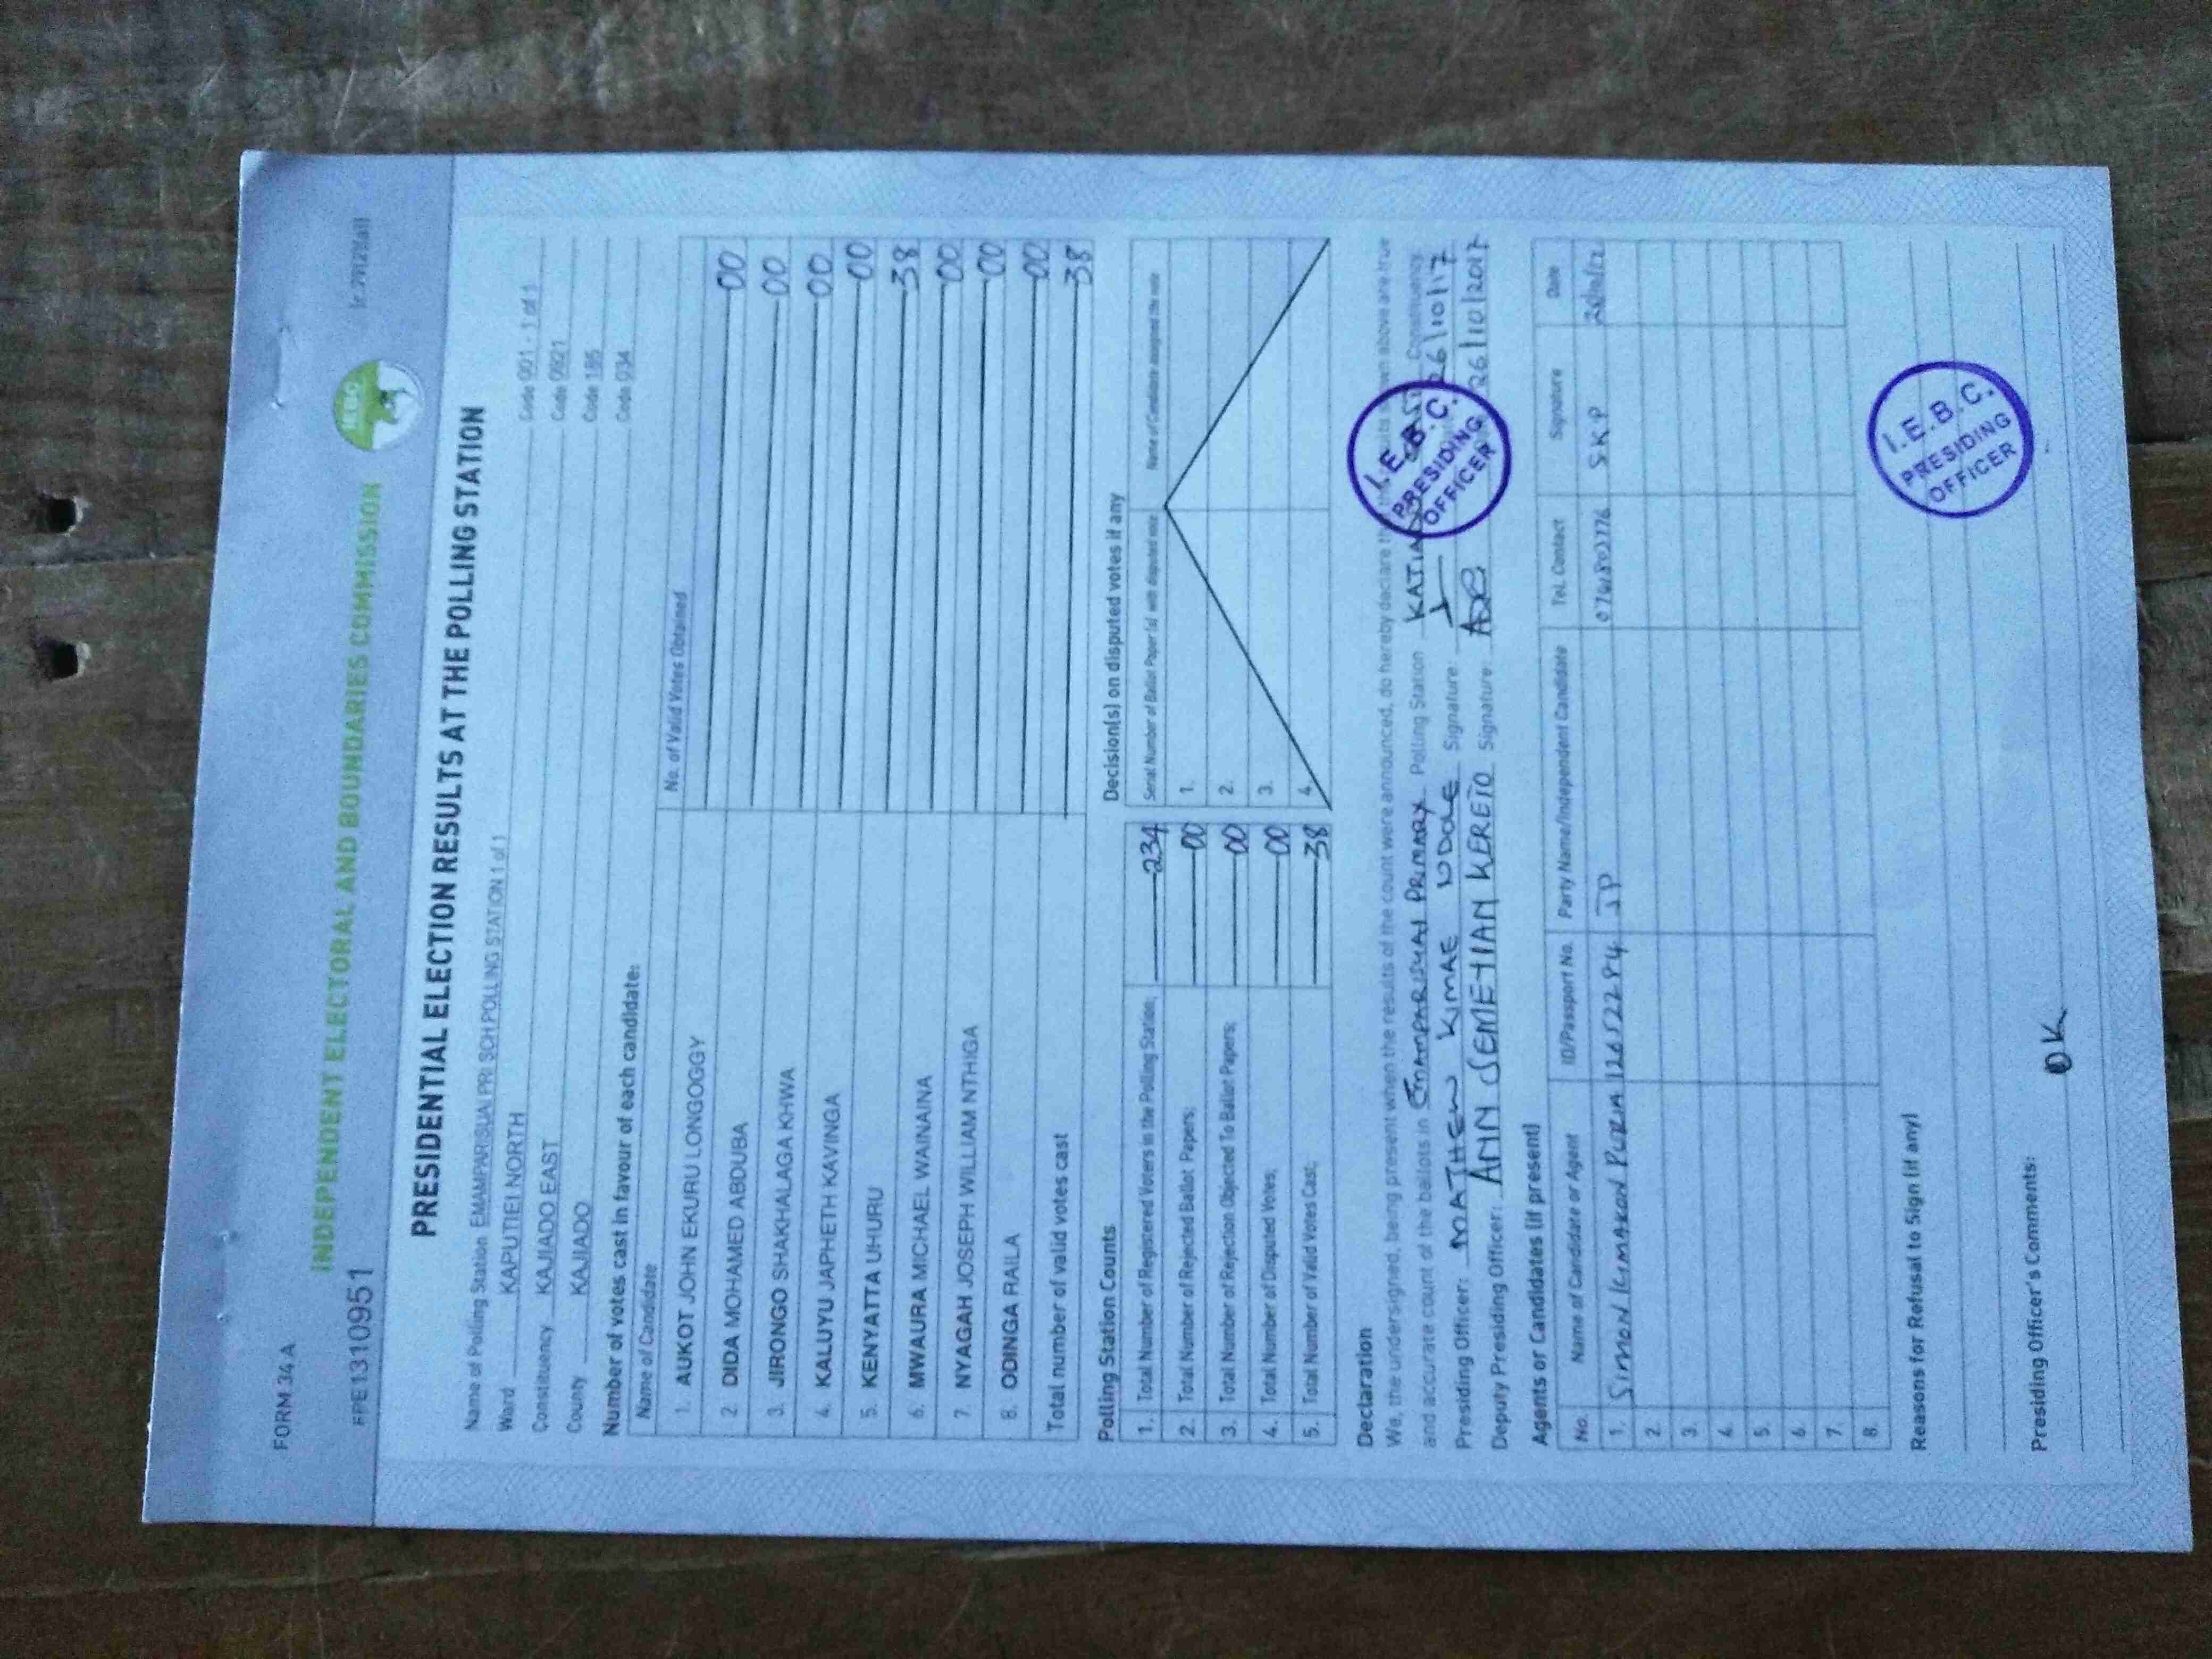 FORM 34A
EPE1310951
INDEPENDENT ELECTORAL AND BOUNDARIES COMMISSION
IEBC
PRESIDENTIAL ELECTION RESULTS AT THE POLLING STATION
Name of Polling Station EMAMPARISUAI PRI SCH POLLING STATION 1 of 1 Code 001 - 1 of 1
Ward KAPUTIEI NORTH Code 0921
Constituency KAJIADO EAST Code 185
County KAJIADO Code 034
Number of votes cast in favour of each candidate:
Name of Candidate No. of Valid Votes Obtained
1. AUKOT JOHN EKURU LONGOGGY 00
2 DIDA MOHAMED ABDUBA 00
3. JIRONGO SHAKHALAGA KHWA 00
4. KALUYU JAPHETH KAVINGA 00
5. KENYATTA UHURU 38
6. MWAURA MICHAEL WAINAINA 00
7. NYAGAH JOSEPH WILLIAM NTHIGA 00
8. ODINGA RAILA 00
Total number of valid votes cast 38
Polling Station Counts
1. Total Number of Registered Voters in the Polling Station; 234
2. Total Number of Rejected Ballot Papers; 00
3. Total Number of Rejection Objected To Ballot Papers; 00
4. Total Number of Disputed Votes; 00
5. Total Number of Valid Votes Cast; 38
Decision(s) on disputed votes if any
Serial Number of Ballot Paper (s) with disputed vote Name of Candidate assigned the vote
1.
2.
3.
4.
Declaration
We, the undersigned, being present when the results of the count were announced, do hereby declare shown above are true
and accurate count of the ballots in EMAMPARISUAI PRIMARY Polling Station Constituency.
Presiding Officer: MATHEW KIMAE NDOLE Signature: 26/10/17
Deputy Presiding Officer: ANN SEMETIAN KERETO Signature: 26/10/2017
I.E.B.C. PRESIDING OFFICER
Agents or Candidates (if present)
No. Name of Candidate or Agent ID/Passport No. Party Name/Independent Candidate Tel. Contact Signature Date
1. SIMON JP SKP
2.
3.
4.
5.
6.
7.
8.
Reasons for Refusal to Sign (if any)
I.E.B.C. PRESIDING OFFICER
Presiding Officer's Comments:
OK